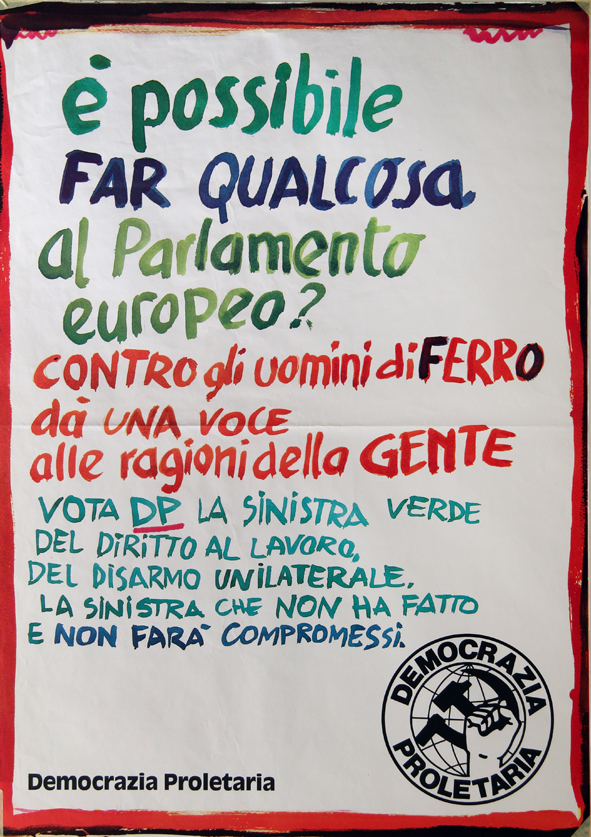 è possibile
FAR QUALCOSA
al Parlamento
europeo?
CONTRO gli uomini di FERRO
dà UNA VOCE
alle ragioni della GENTE
VOTA DP LA SINISTRA VERDE
DEL DIRITTO AL LAVORO,
DEL DISARMO UNILATERALE.
LA SINISTRA CHE NON HA FATTO
E NON FARA' COMPROMESSI.
DEMOCRAZIA
PROLETARIA
Democrazia Proletaria